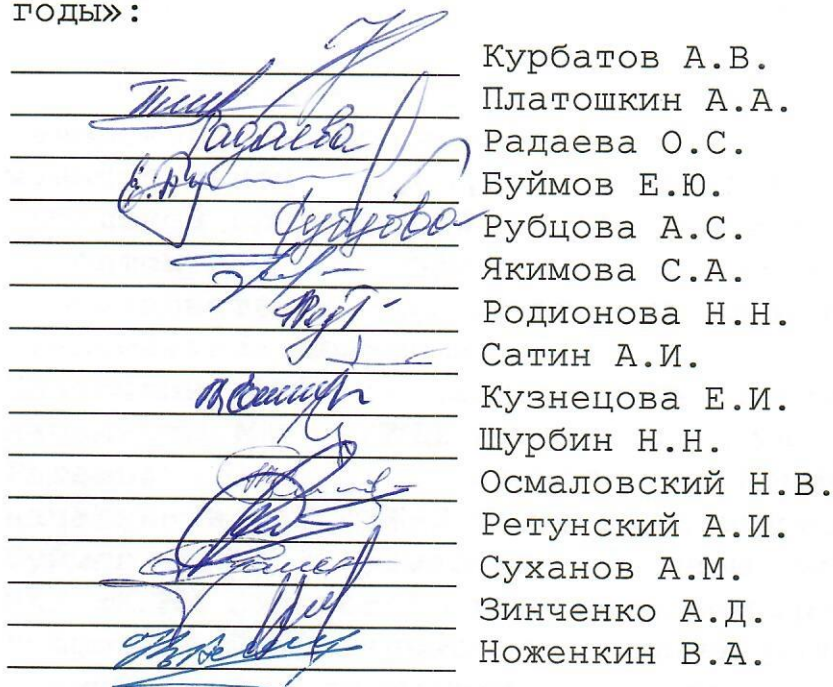 годы»:
Курбатов А.В.
Платошкин А.А.
Радаева Радаева О.С.
Буймов Е.Ю.
Рубцова Рубцова А.С.
Якимова С.А.
Родионова Н.Н.
Сатин А.И.
Кузнецова Е.И.
Шурбин Н.Н.
Осмаловский Н.В.
Ретунский А.И.
Суханов А.М.
Зинченко А.Д.
Ноженкин В.А.